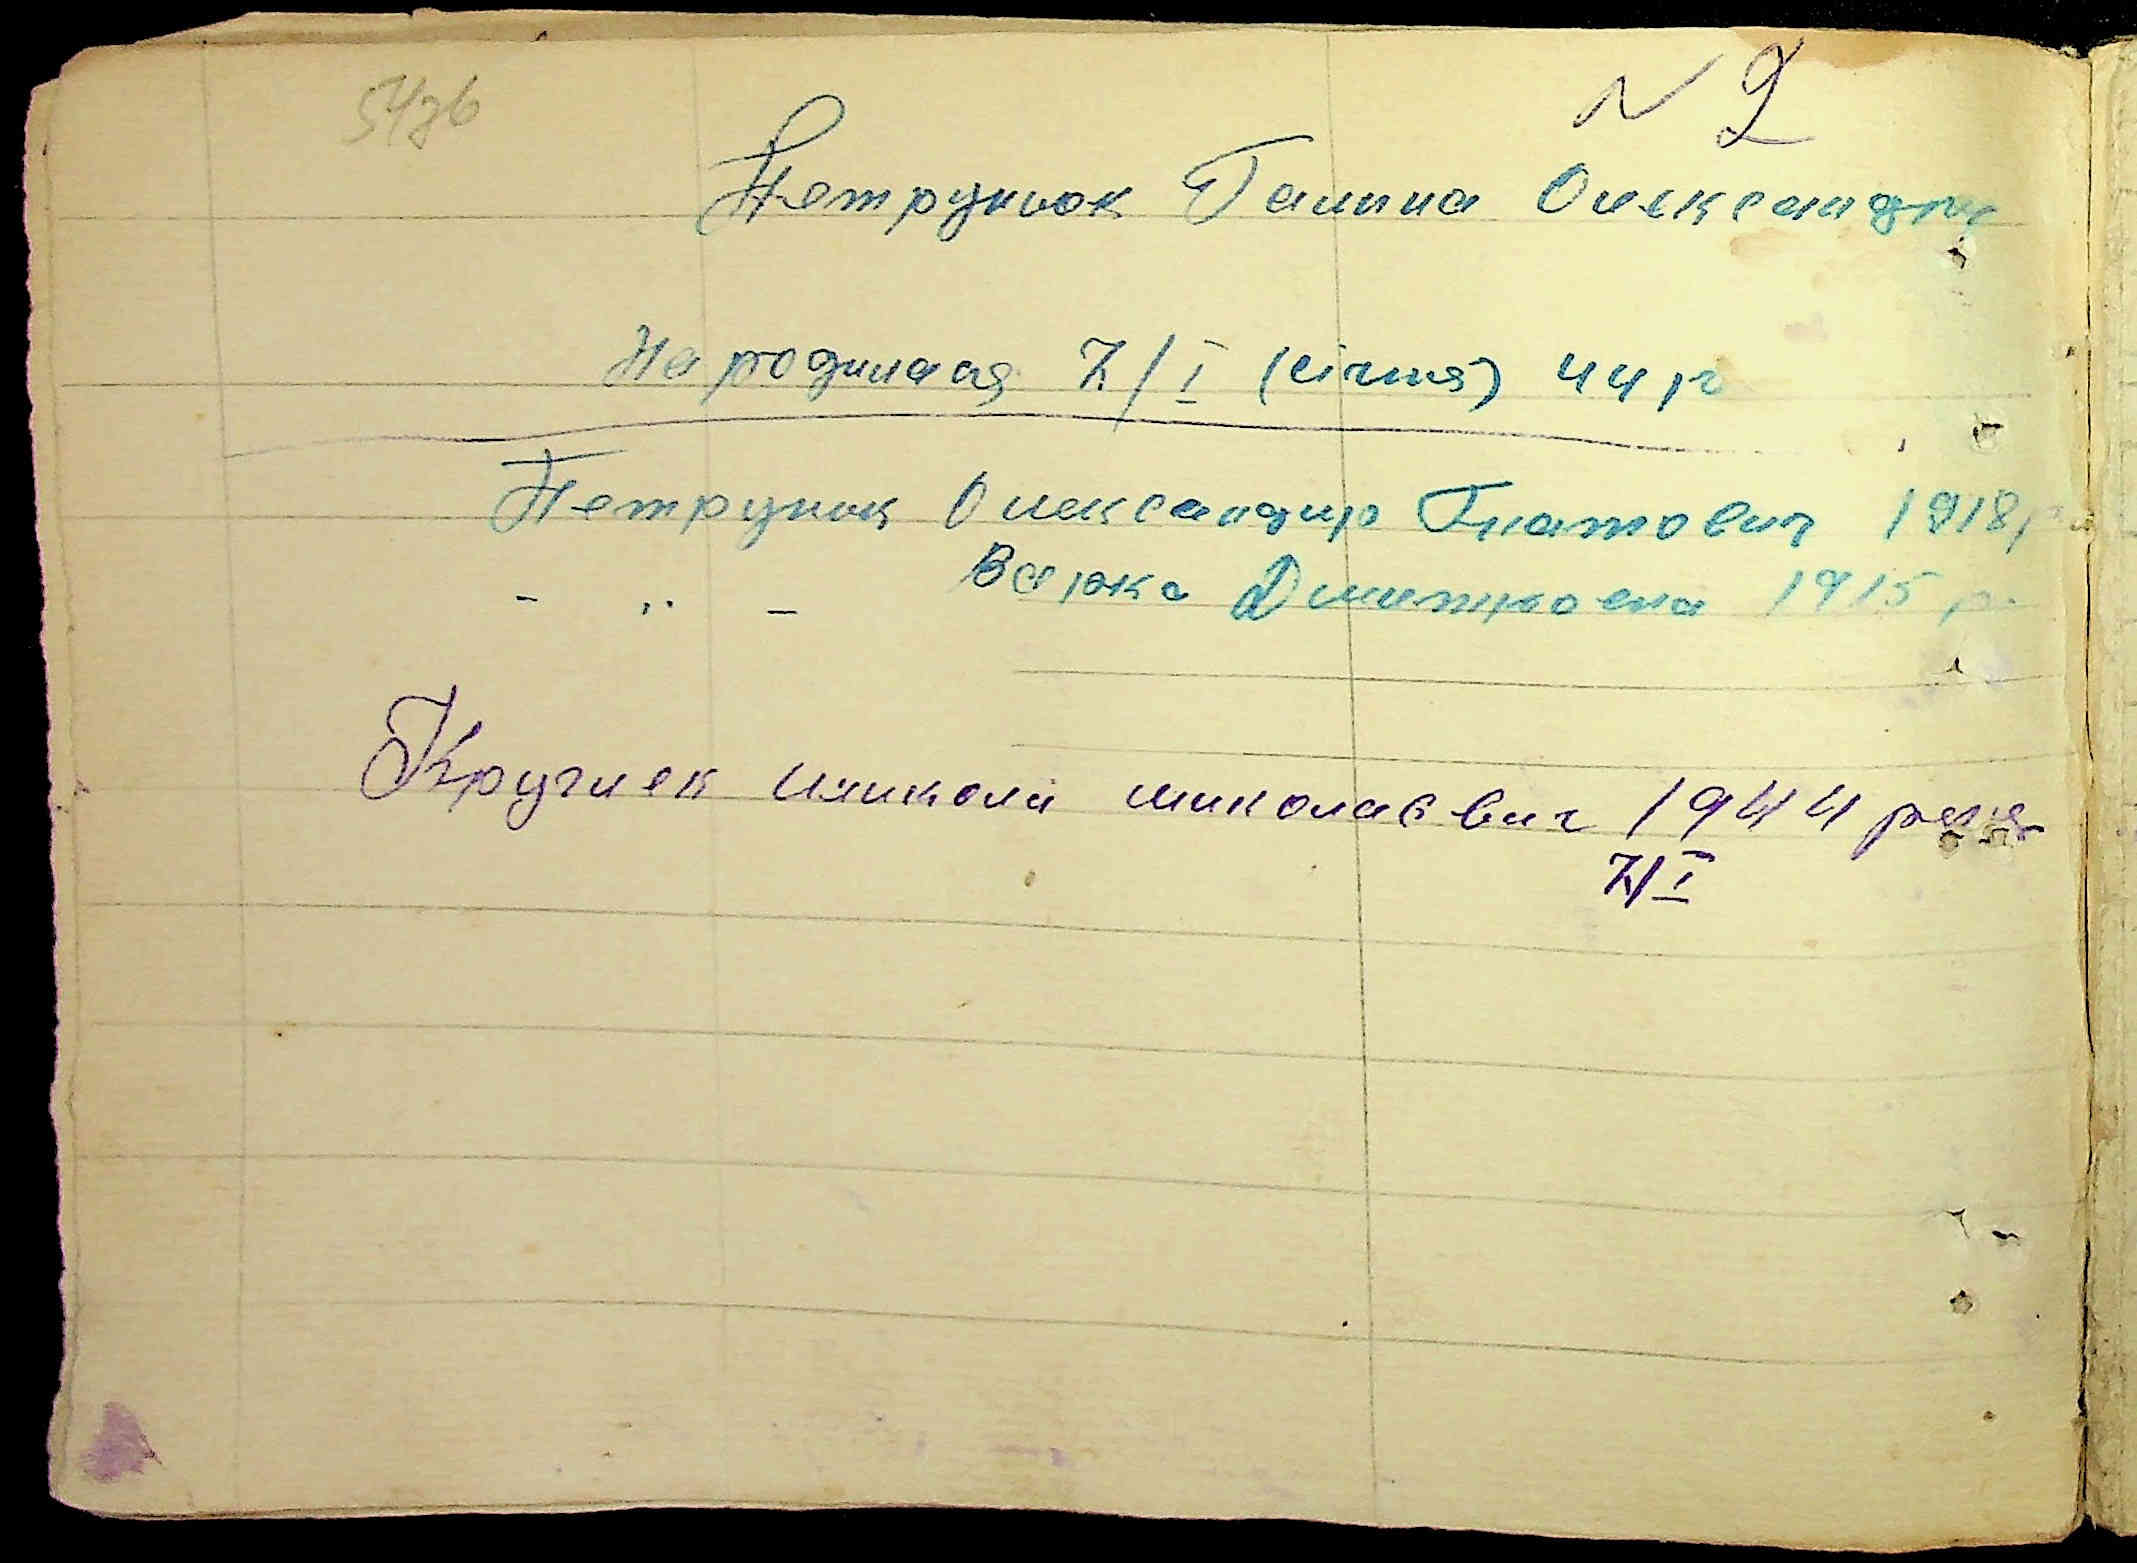 54зв
N 2
Петрунюк Галина Олександр
Народилася 7/I (січня) 44 р
Петрунюк Олександир Гнатович 1918 р
- " - Дмитровна 1915 р.
микола миколаєвич 1944 року
7/I